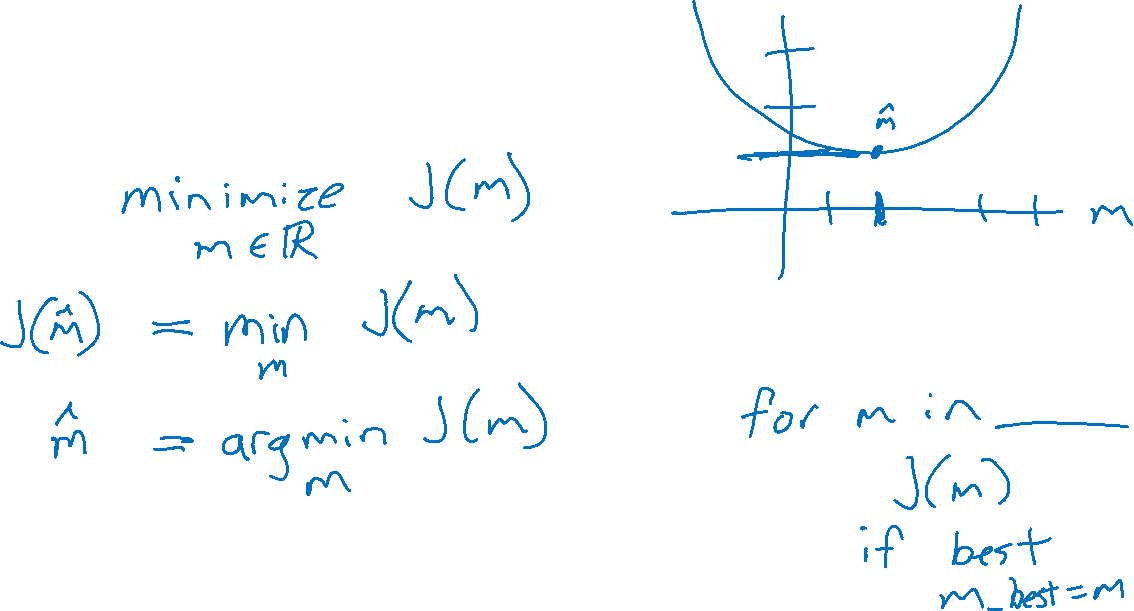 minimize J(m)
m ∈ ℝ
J(m̂) = min J(m)
m
m̂ = argmin J(m)
m
m̂
m
for m in ______
J(m)
if best
m_best = m